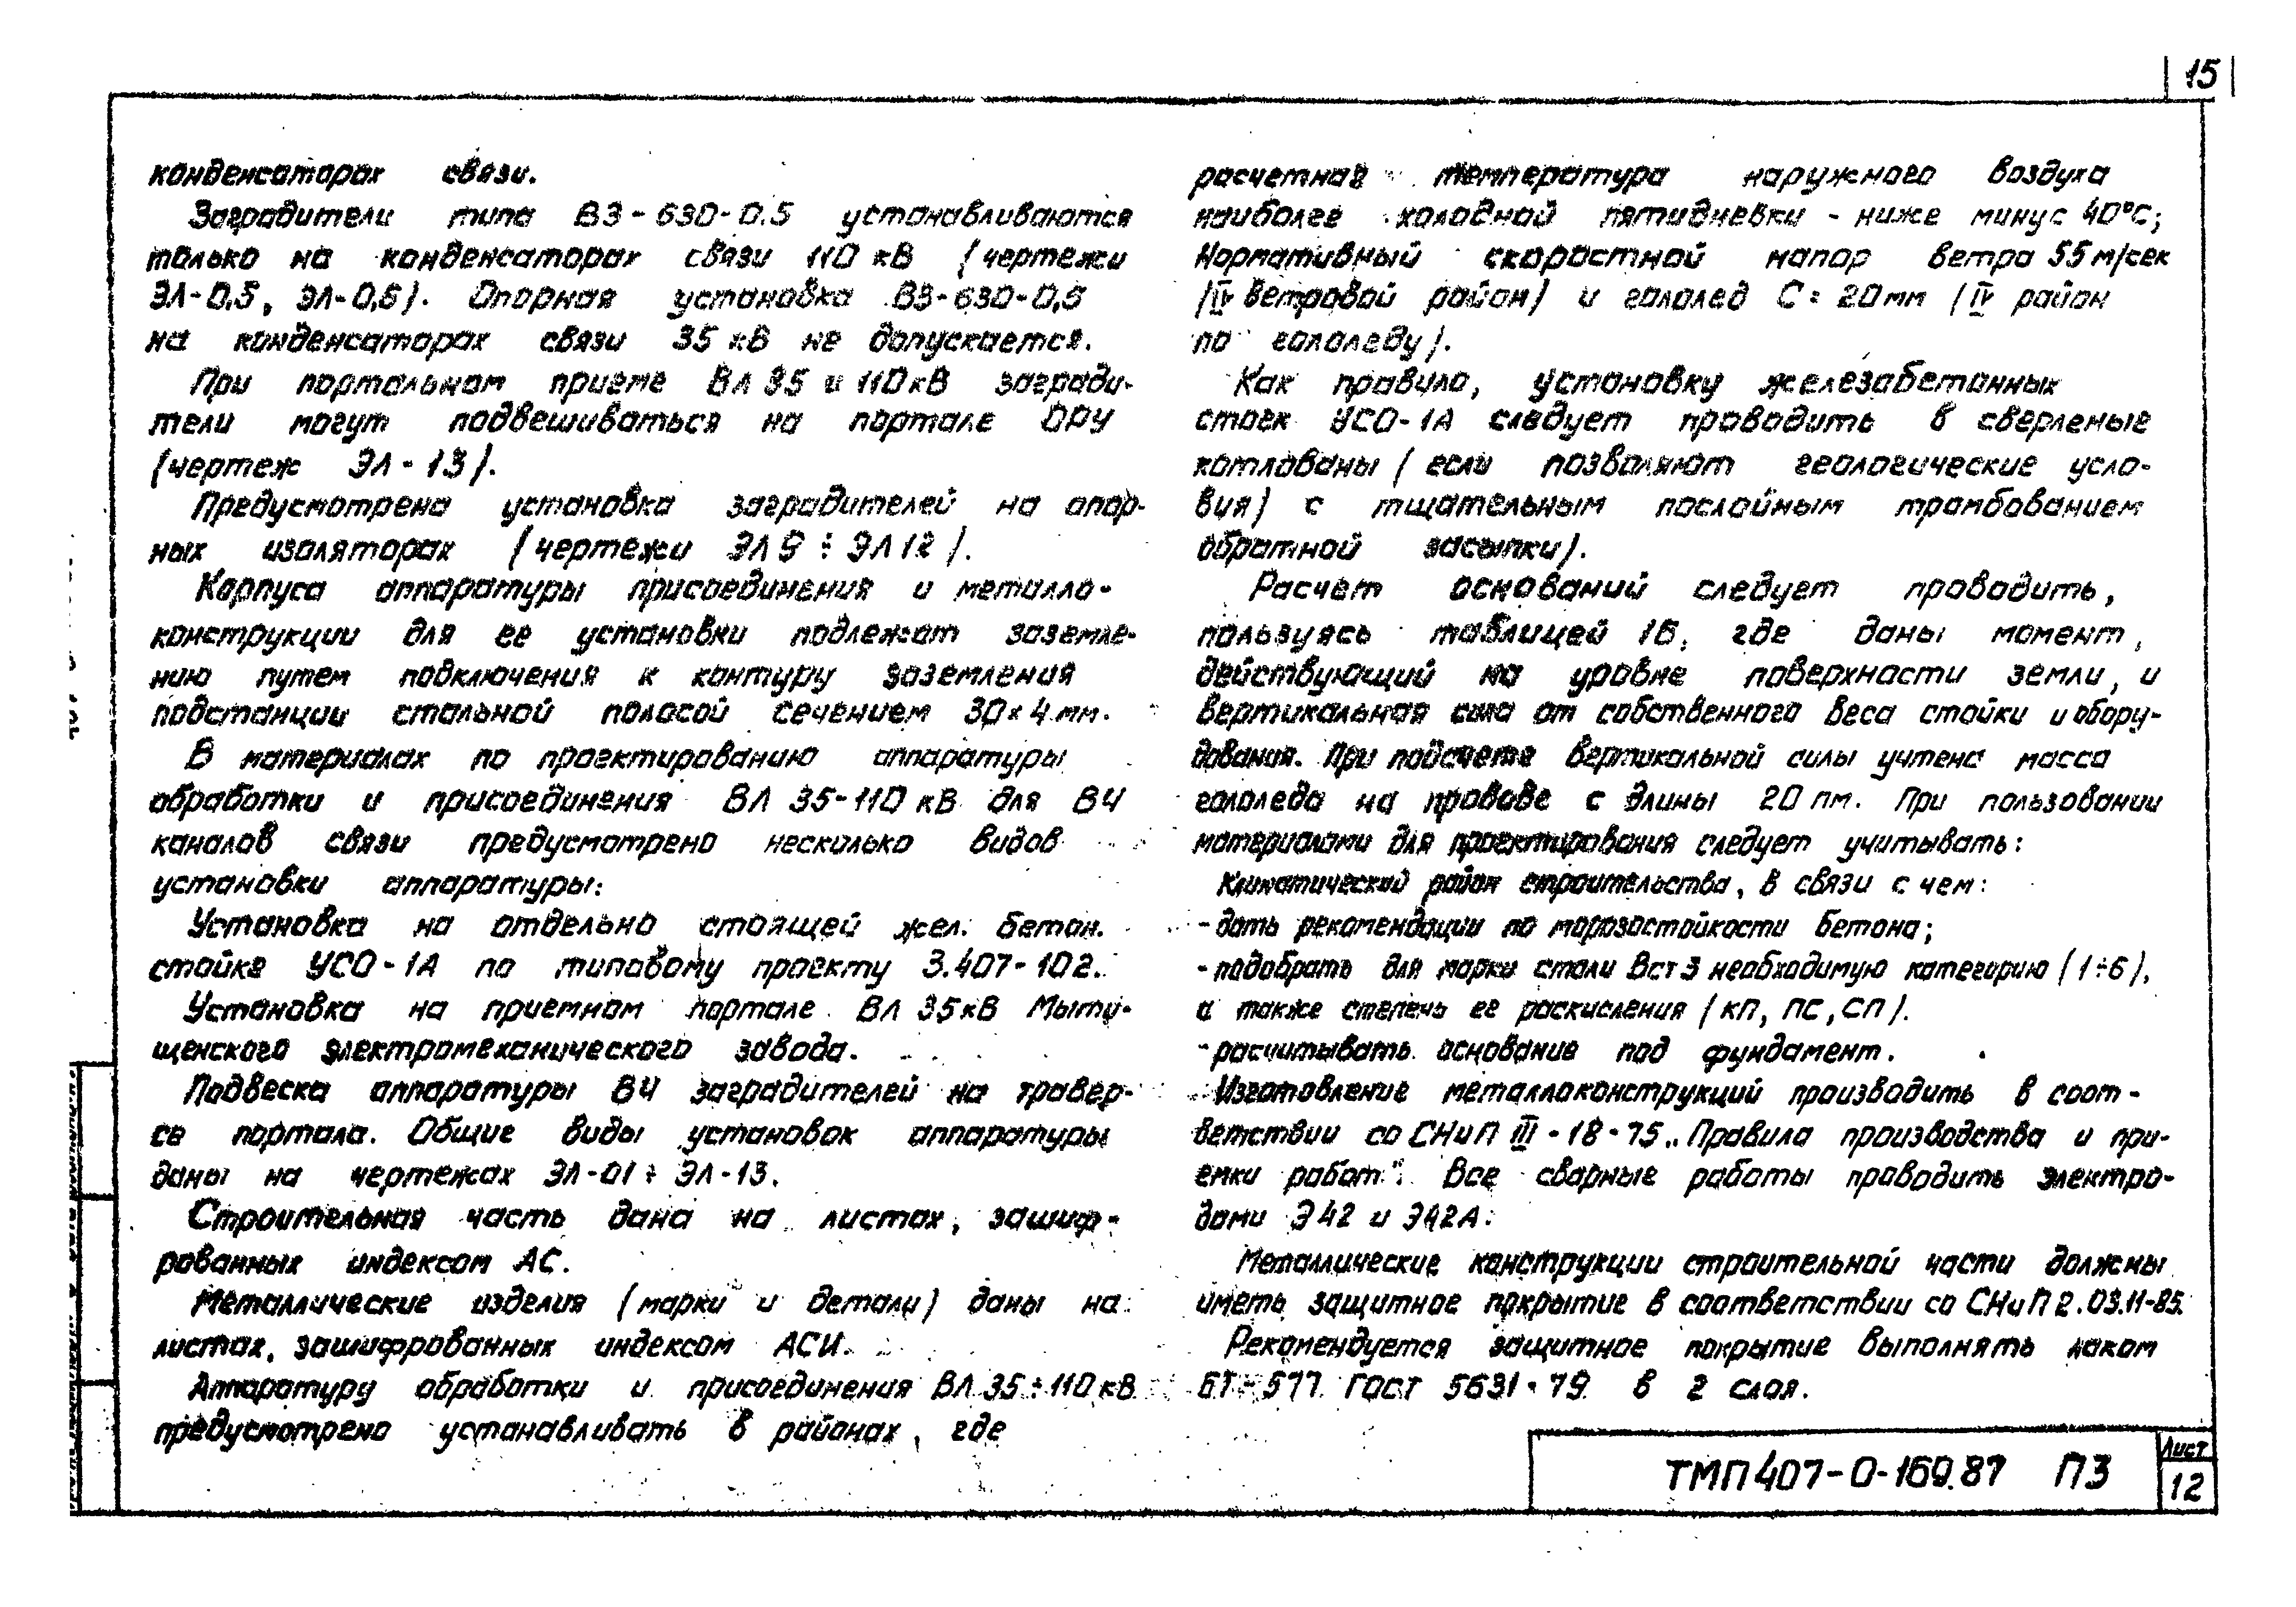 15
конденсаторах связи.
Заградители типа ВЗ-630-0.5 устанавливаются
только на конденсаторах связи 110 кВ (чертежи
ЭЛ-0,5, ЭЛ-0,6). Опорная установка ВЗ-630-0,5
на конденсаторах связи 35 кВ не допускается.
При портальном приеме ВЛ 35 и 110 кВ загради-
тели могут подвешиваться на портале ОРУ
(чертеж ЭЛ-13).
Предусмотрена установка заградителей на опор-
ных изоляторах (чертежи ЭЛ9÷ЭЛ12).
Корпуса аппаратуры присоединения и металло-
конструкции для ее установки подлежат заземле-
нию путем подключения к контуру заземления
подстанции стальной полосой сечением 30×4 мм.
В материалах по проектированию аппаратуры
обработки и присоединения ВЛ 35-110 кВ для ВЧ
каналов связи предусмотрено несколько видов
установки аппаратуры:
Установка на отдельно стоящей жел. бетон.
стойке УСО-1А по типовому проекту 3.407-102.
Установка на приемном портале ВЛ 35кВ Мыти-
щенского электромеханического завода.
Подвеска аппаратуры ВЧ заградителей на травер-
се портала. Общие виды установок аппаратуры
даны на чертежах ЭЛ-01÷ЭЛ-13.
Строительная часть дана на листах, зашиф-
рованных индексом АС.
Металлические изделия (марки и детали) даны на
листах, зашифрованных индексом АСИ.
Аппаратуру обработки и присоединения ВЛ 35÷110 кВ
предусмотрено устанавливать в районах, где
расчетная температура наружного воздуха
наиболее холодной пятидневки - ниже минус 40°С;
Нормативный скоростной напор ветра 55 м/сек
(IV ветровой район) и гололед С=20мм (IV район
по гололеду).
Как правило, установку железабетонных
стоек УСО-1А следует проводить в сверленые
котлованы (если позволяют геологические усло-
вия) с тщательным послойным трамбованием
обратной засыпки).
Расчет оснований следует проводить,
пользуясь таблицей 16, где даны момент,
действующий на уровне поверхности земли, и
вертикальная сила от собственного веса стойки и обору-
дования. При подсчете вертикальной силы учтена масса
гололеда на проводе с длины 20 пм. При пользовании
материалами для проектирования следует учитывать:
Климатический район строительства, в связи с чем:
- дать рекомендации по морозостойкости бетона;
- подобрать для марки стали Вст3 необходимую категорию (1÷6),
а также степень ее раскисления (КП, ПС, СП).
- расчитывать основание под фундамент.
Изготовление металлоконструкций производить в соот-
ветствии со СНиП III-18-75 „Правила производства и при-
емки работ". Все сварные работы проводить электро-
дами Э42 и Э42А.
Металлические конструкции строительной части должны
иметь защитное покрытие в соответствии со СНиП 2.03.11-85.
Рекомендуется защитное покрытие выполнять лаком
БТ-577 ГОСТ 5631-79 в 2 слоя.
ТМП 407-0-169.87 ПЗ
Лист
12